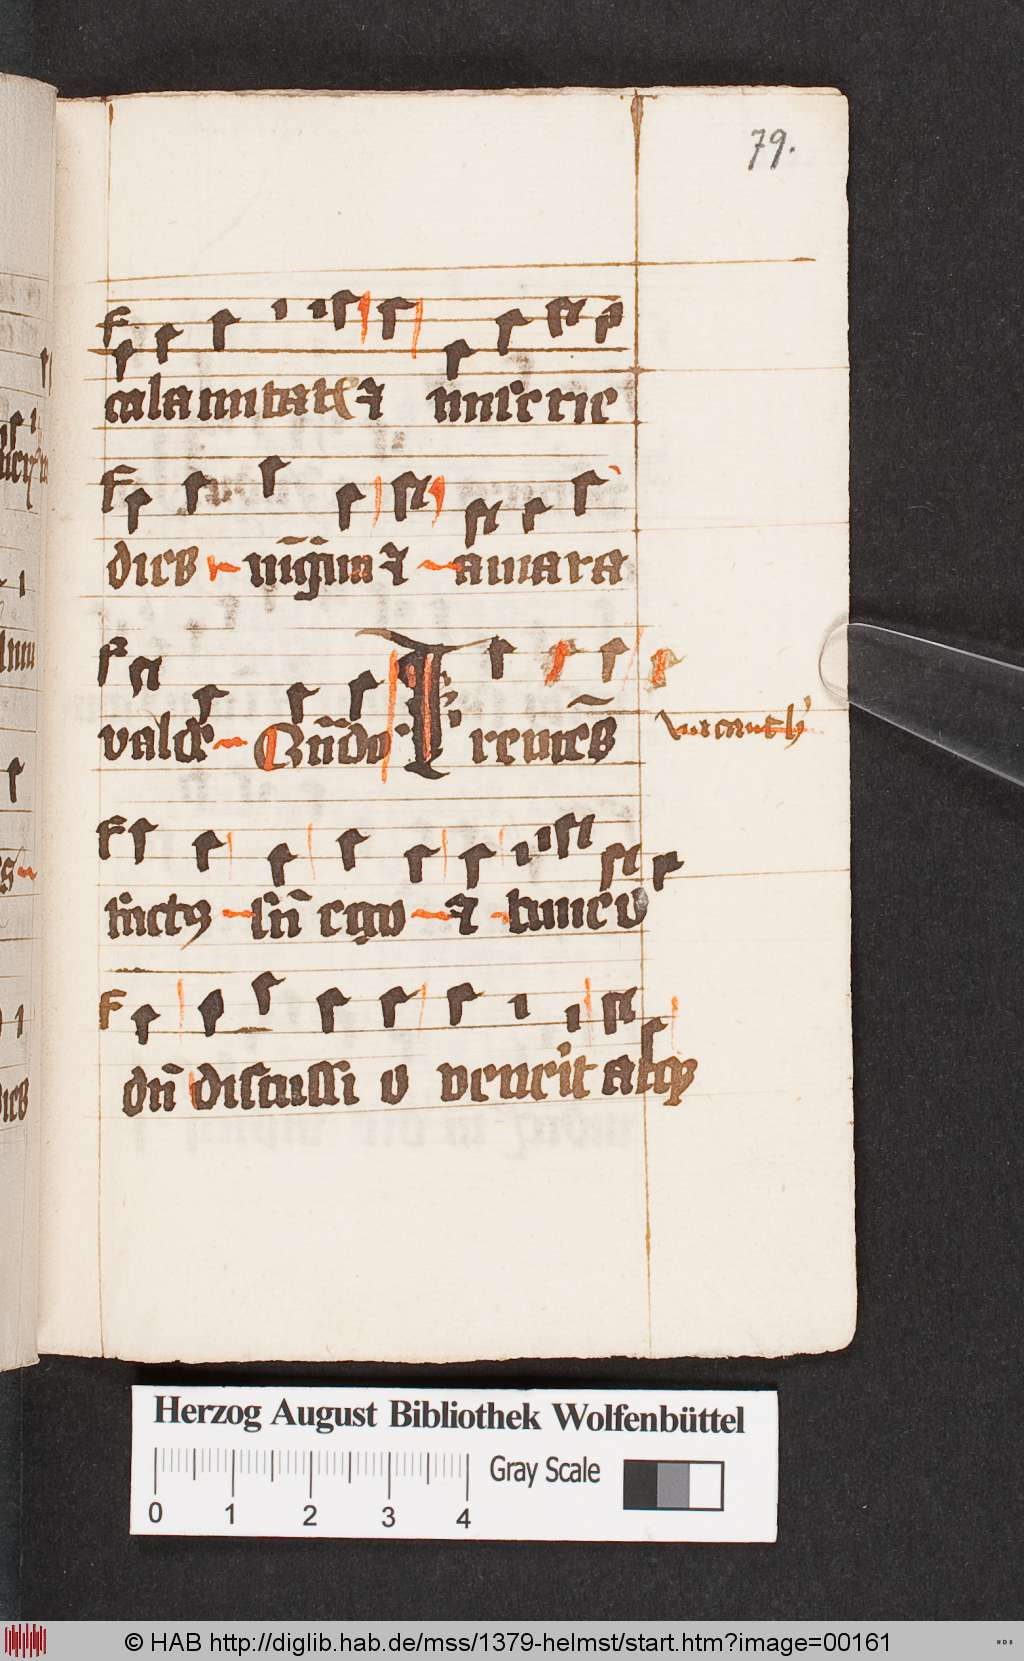 79.
calamitat(is) ⁊ miserie
dies magna ⁊ amara
valde Qn̄do T remēs
vacant
factꝰ sū ego ⁊ timeo
dū discussi o venerit atqꝫ
Herzog August Bibliothek Wolfenbüttel
0 1 2 3 4 Gray Scale
© HAB http://diglib.hab.de/mss/1379-helmst/start.htm?image=00161